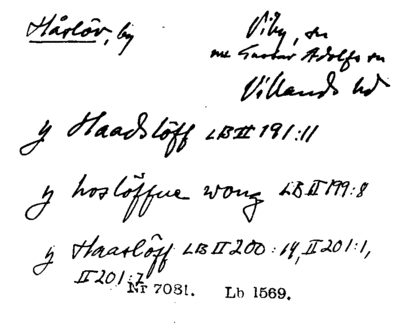 Håslöv, by
Viby, sn
nu Gustav Adolfs sn
Villands hd
y Haadslöff LB II 191:11
y hoslöffue wong LB II 199:8
y Haaslöff LB II 200:14, II 201:1,
II 201:7
Nr 7081. Lb 1569.